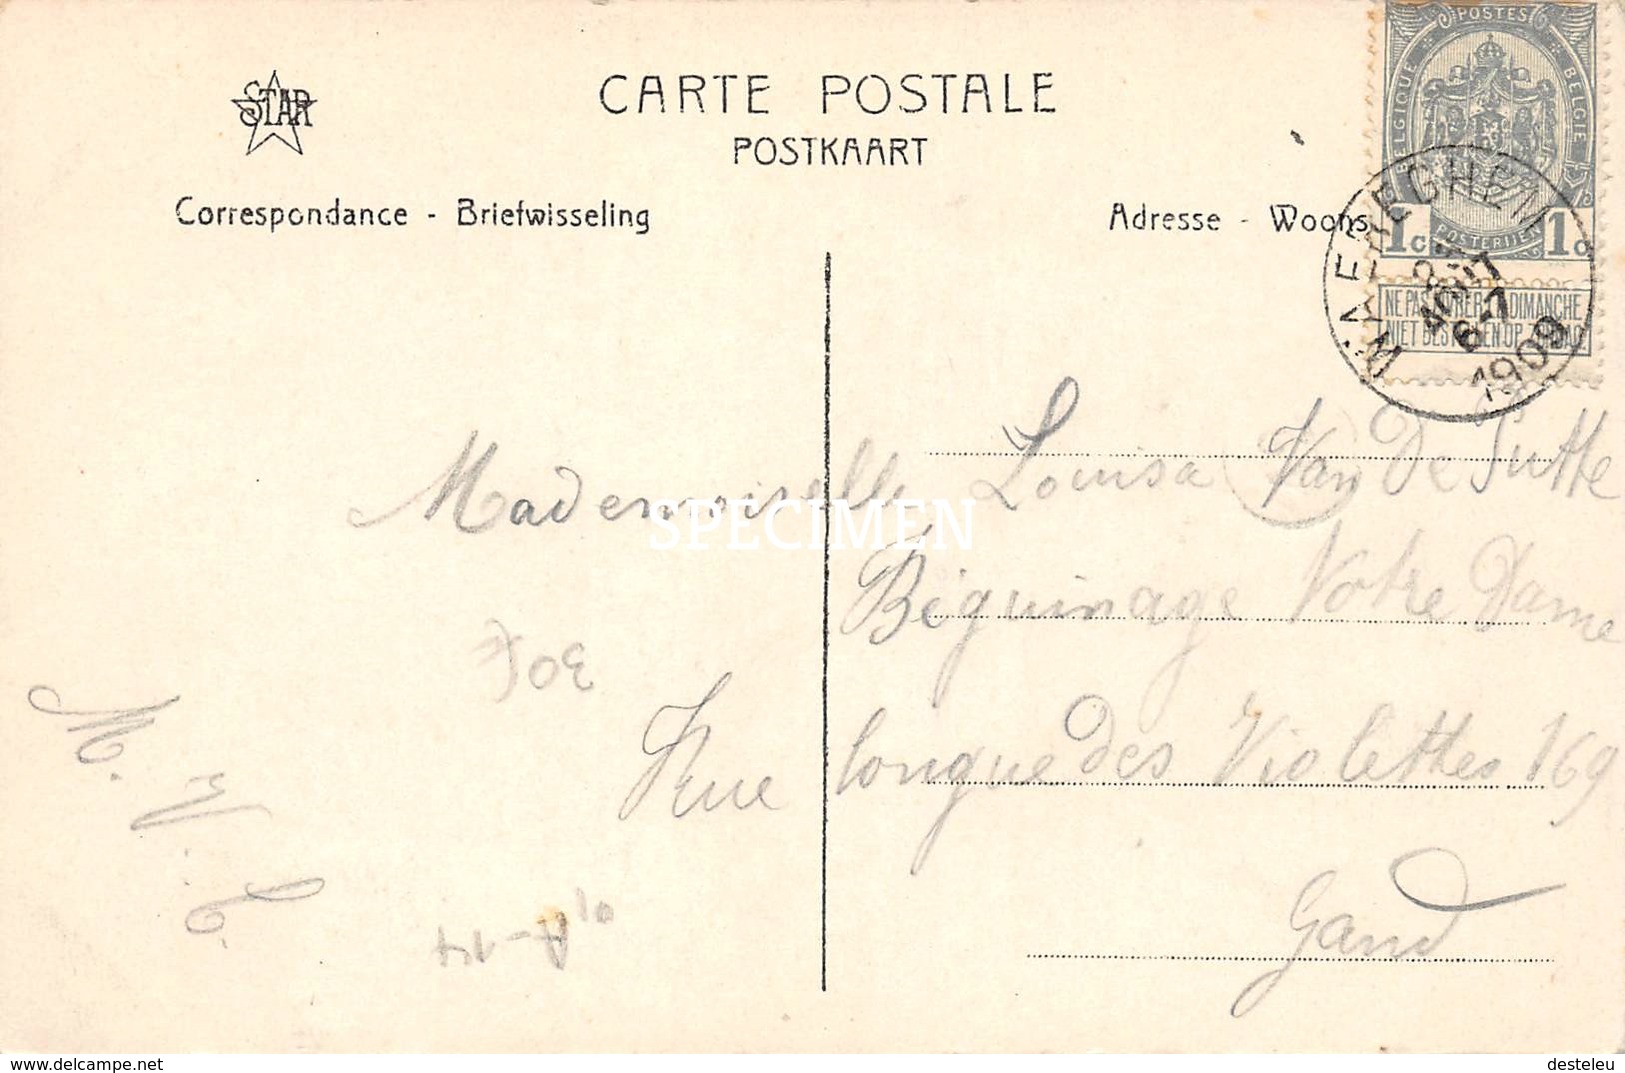 STAR
CARTE POSTALE
POSTKAART
Correspondance - Briefwisseling
Adresse - Woons
POSTES
BELGIQUE
BELGIE
1c
POSTERIJEN
1c
NE PAS LIVRER LE DIMANCHE
NIET BESTELLEN OP ZONDAG
WAEREGHEM
AOUT
6-7
1909
Mademoiselle Louisa Van De Putte
Béguinage Notre Dame
Rue longue des Violettes 169
Gand
SPECIMEN
www.delcampe.net
desteleu